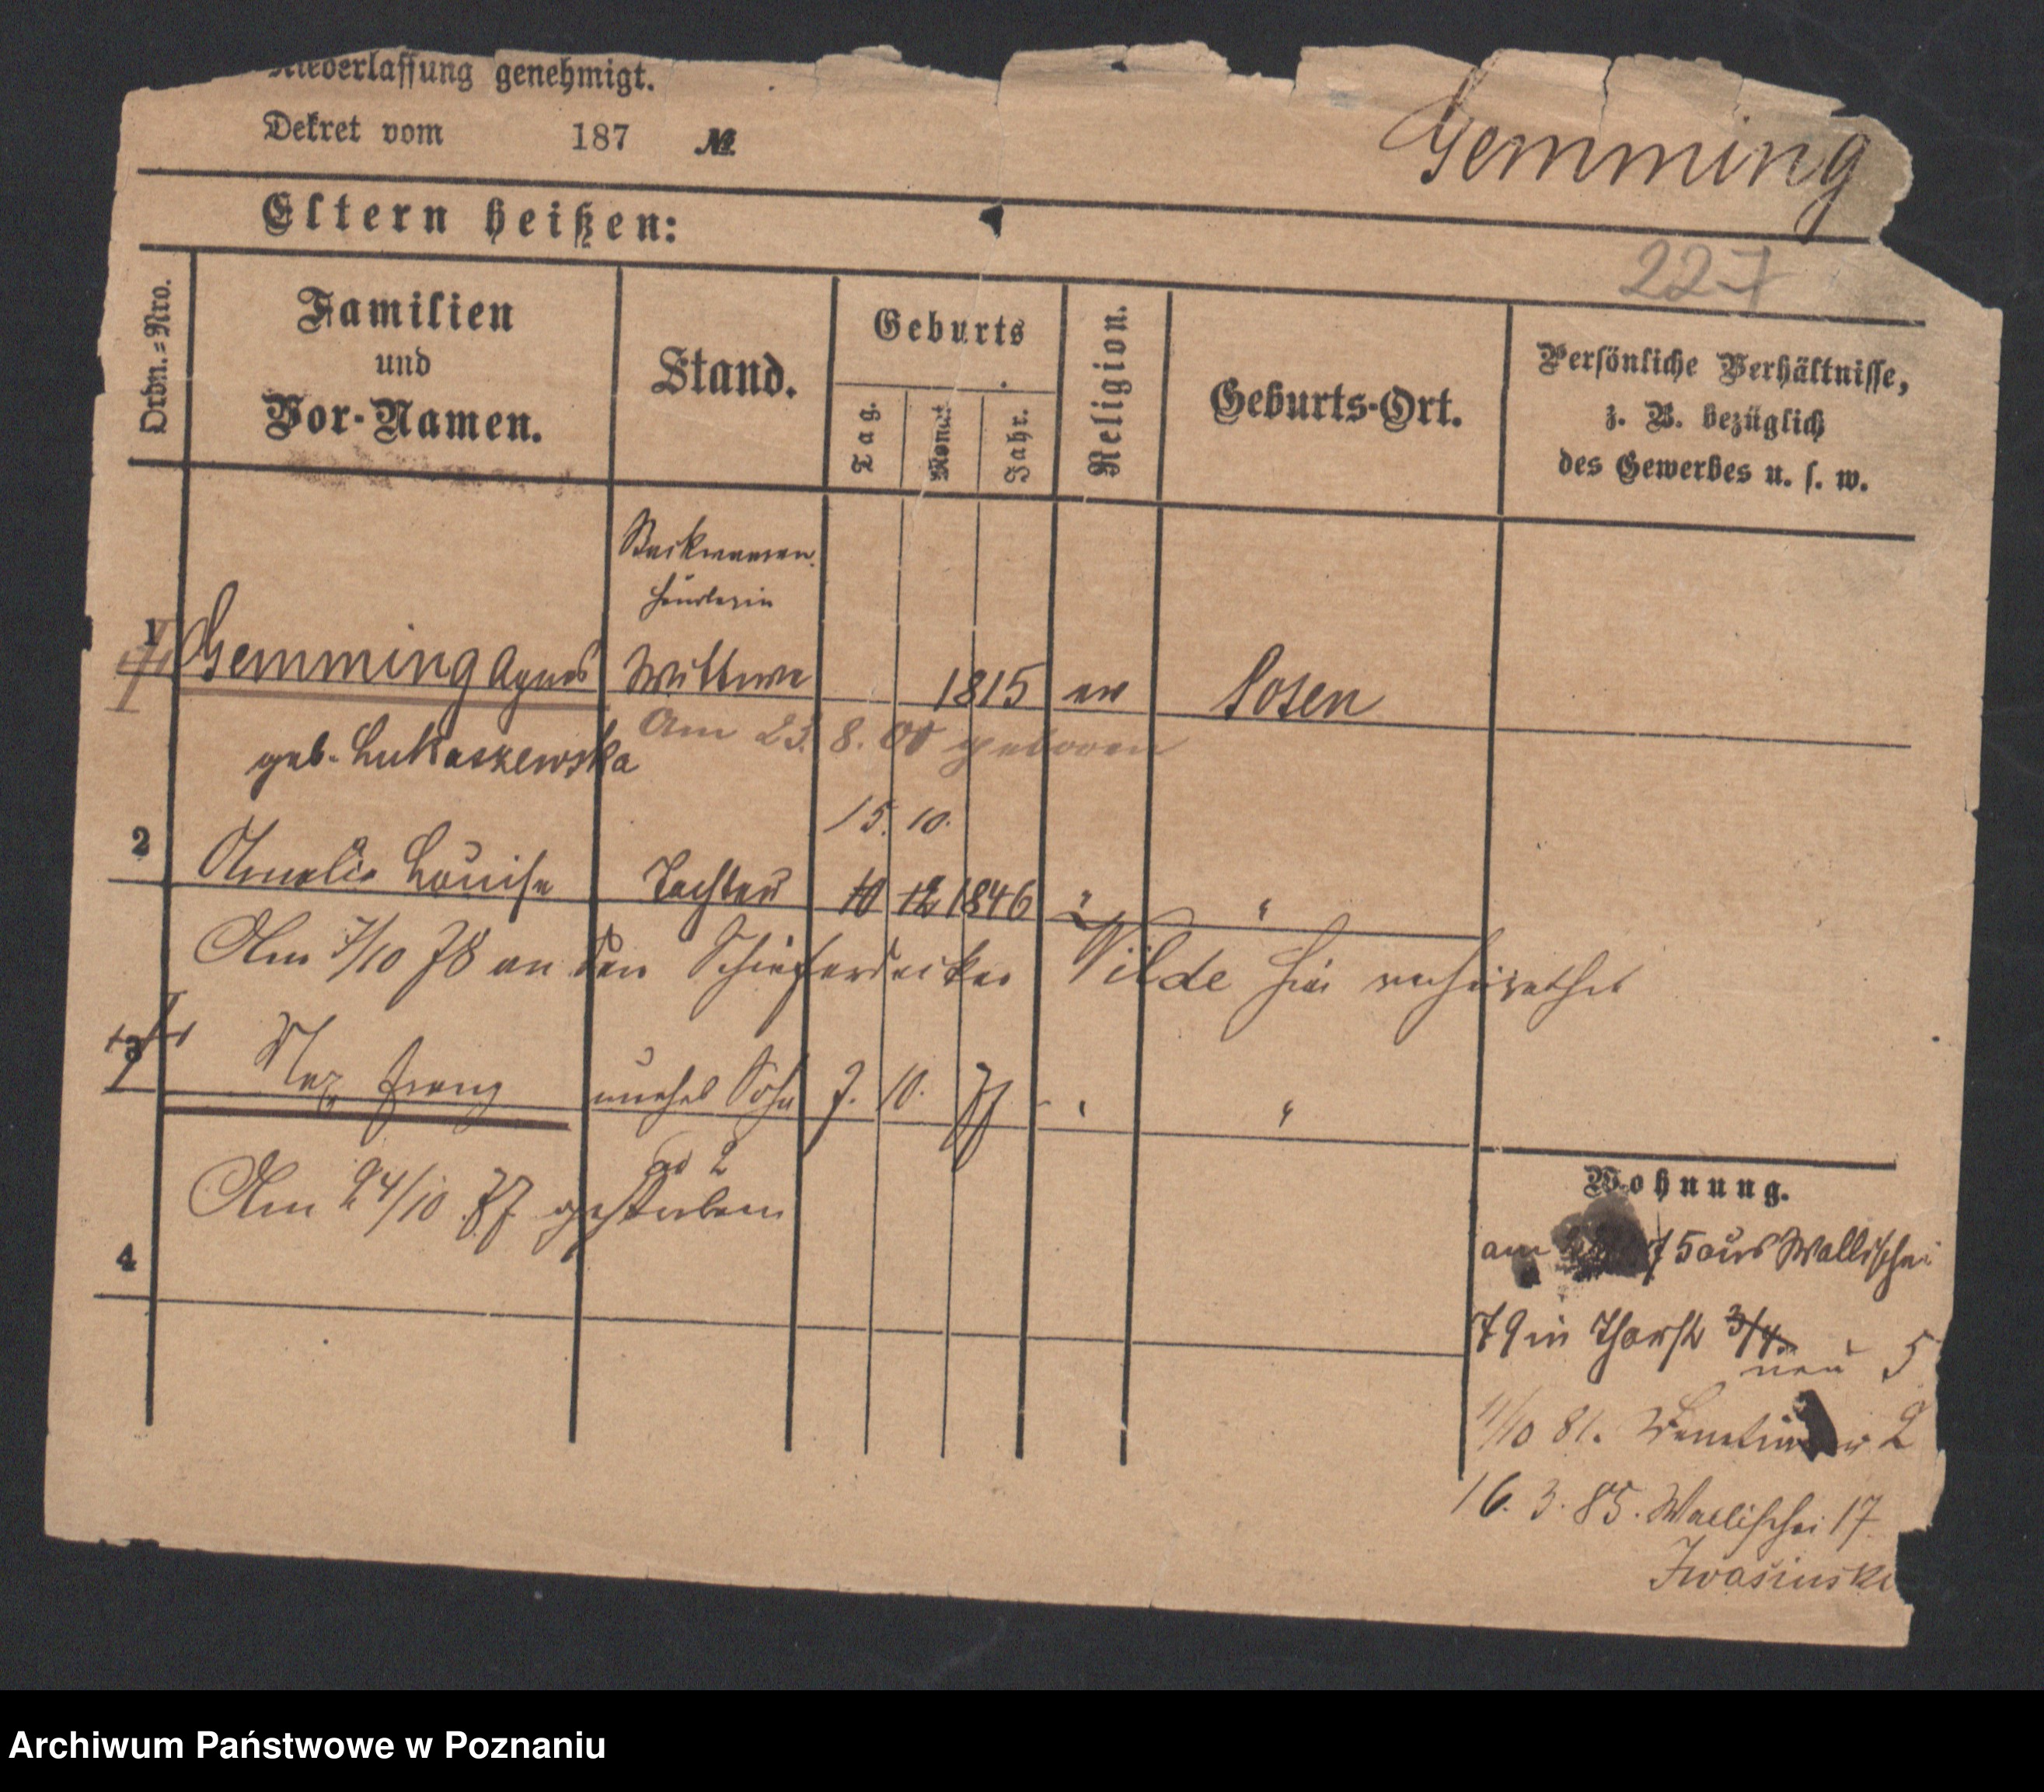 Niederlassung genehmigt.
Dekret vom 187 №
Gemming
Eltern heißen:
227
Ordn.=Nro.
Familien
und
Vor-Namen.
Stand.
Geburts
Tag.
Monat
Jahr.
Religion.
Geburts-Ort.
Persönliche Verhältnisse,
z. B. bezüglich
des Gewerbes u. s. w.
1
Gemming Agnes Wittwe 1815 ev Posen
geb. Lukaszewska
Am 23. 8. 00
15. 10.
2 Amalie Louise Tochter 10 12 1846 " "
Am 7/10 78 an den Schieferdecker Wilde hier verheirathet
3 Max Franz unehel Sohn 7. 10. 77 " "
ad 2
Am 24/10 77 gestorben
4
Wohnung.
am 75 aus Wallischei
79 in Thorstr 3/4.
neu 5
11/10 81. 2
16. 3. 85. Wallischei 17
Iwasinski